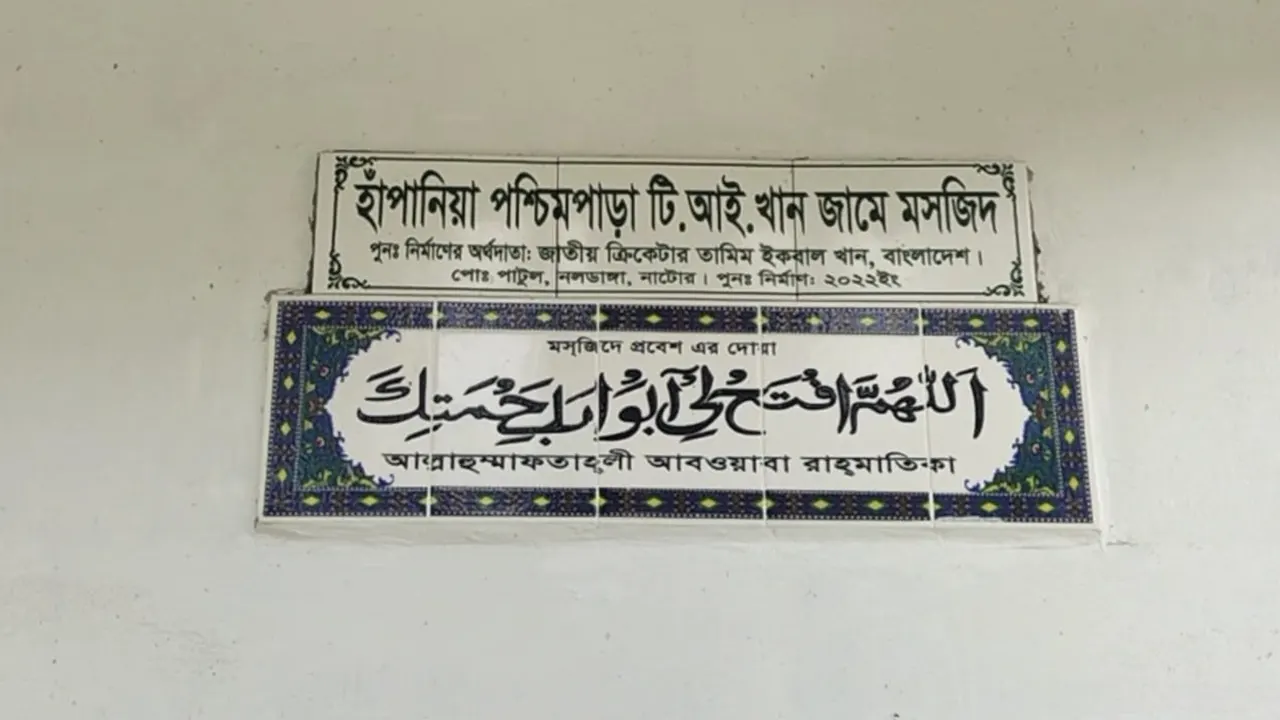 হাঁপানিয়া পশ্চিমপাড়া টি.আই.খান জামে মসজিদ
পুনঃ নির্মাণের অর্থদাতা: জাতীয় ক্রিকেটার তামিম ইকবাল খান, বাংলাদেশ।
পোঃ পাটুল, নলডাঙ্গা, নাটোর। পুনঃ নির্মাণ: ২০২২ইং
মসজিদে প্রবেশ এর দোয়া
اَللّٰهُمَّ افْتَحْ لِيْ اَبْوَابَ رَحْمَتِكَ
আল্লাহুম্মাফতাহ্‌লী আবওয়াবা রাহ্‌মাতিকা